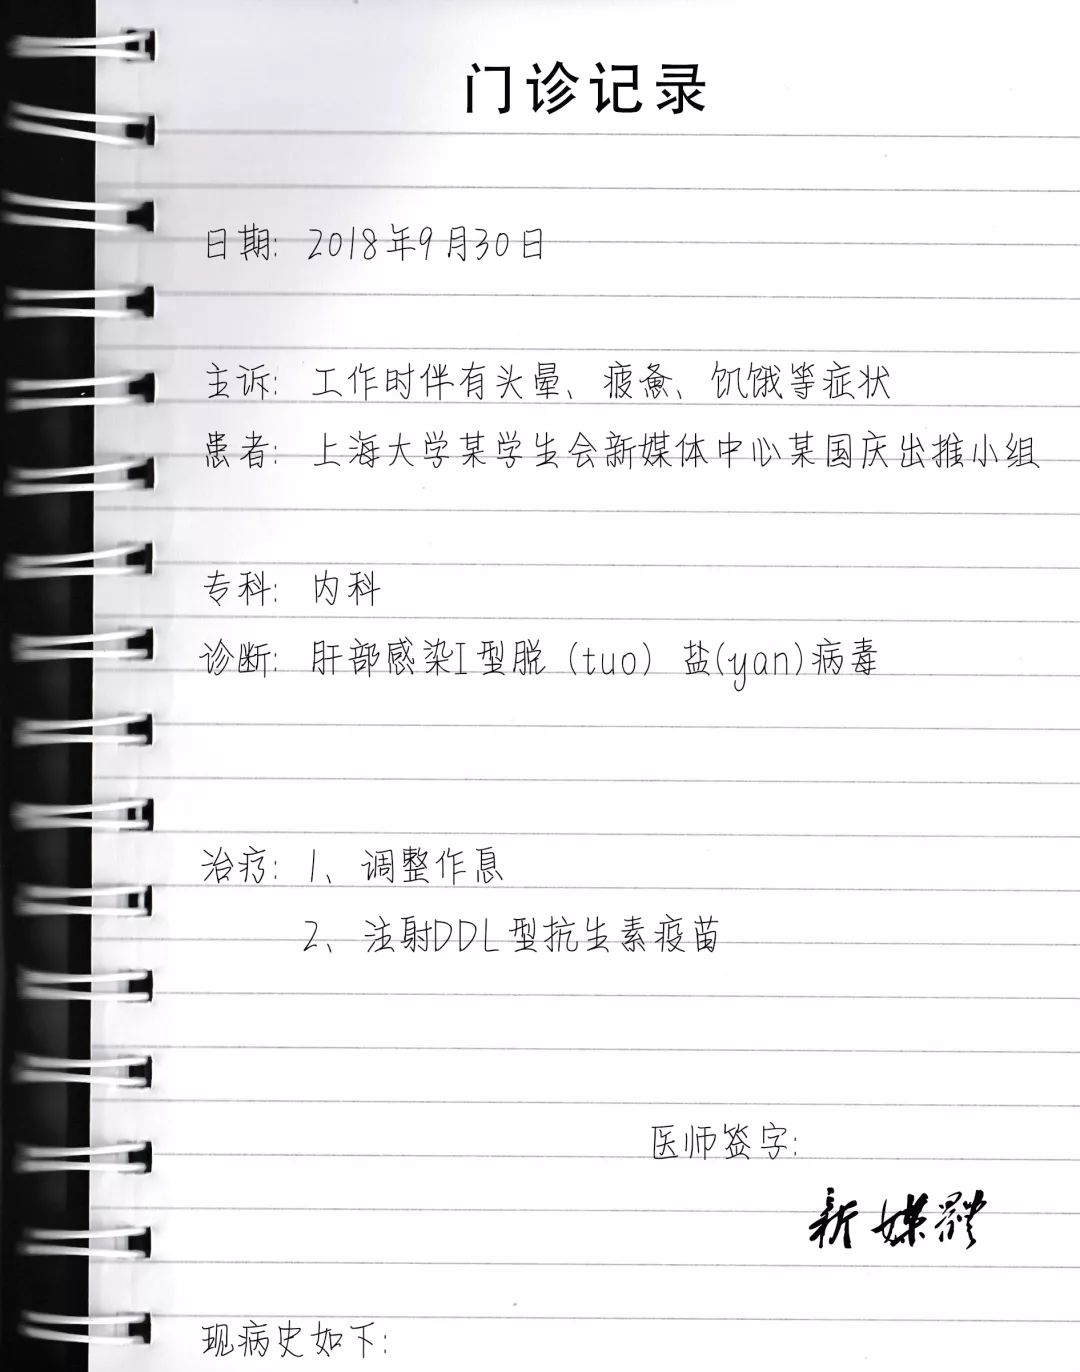 门诊记录
日期: 2018年9月30日
主诉: 工作时伴有头晕、疲惫、饥饿等症状
患者: 上海大学某学生会新媒体中心某国庆出推小组
专科: 内科
诊断: 肝部感染I型脱（tuo）盐(yan)病毒
治疗: 1、调整作息
2、注射DDL型抗生素疫苗
医师签字:
新媒體
现病史如下: